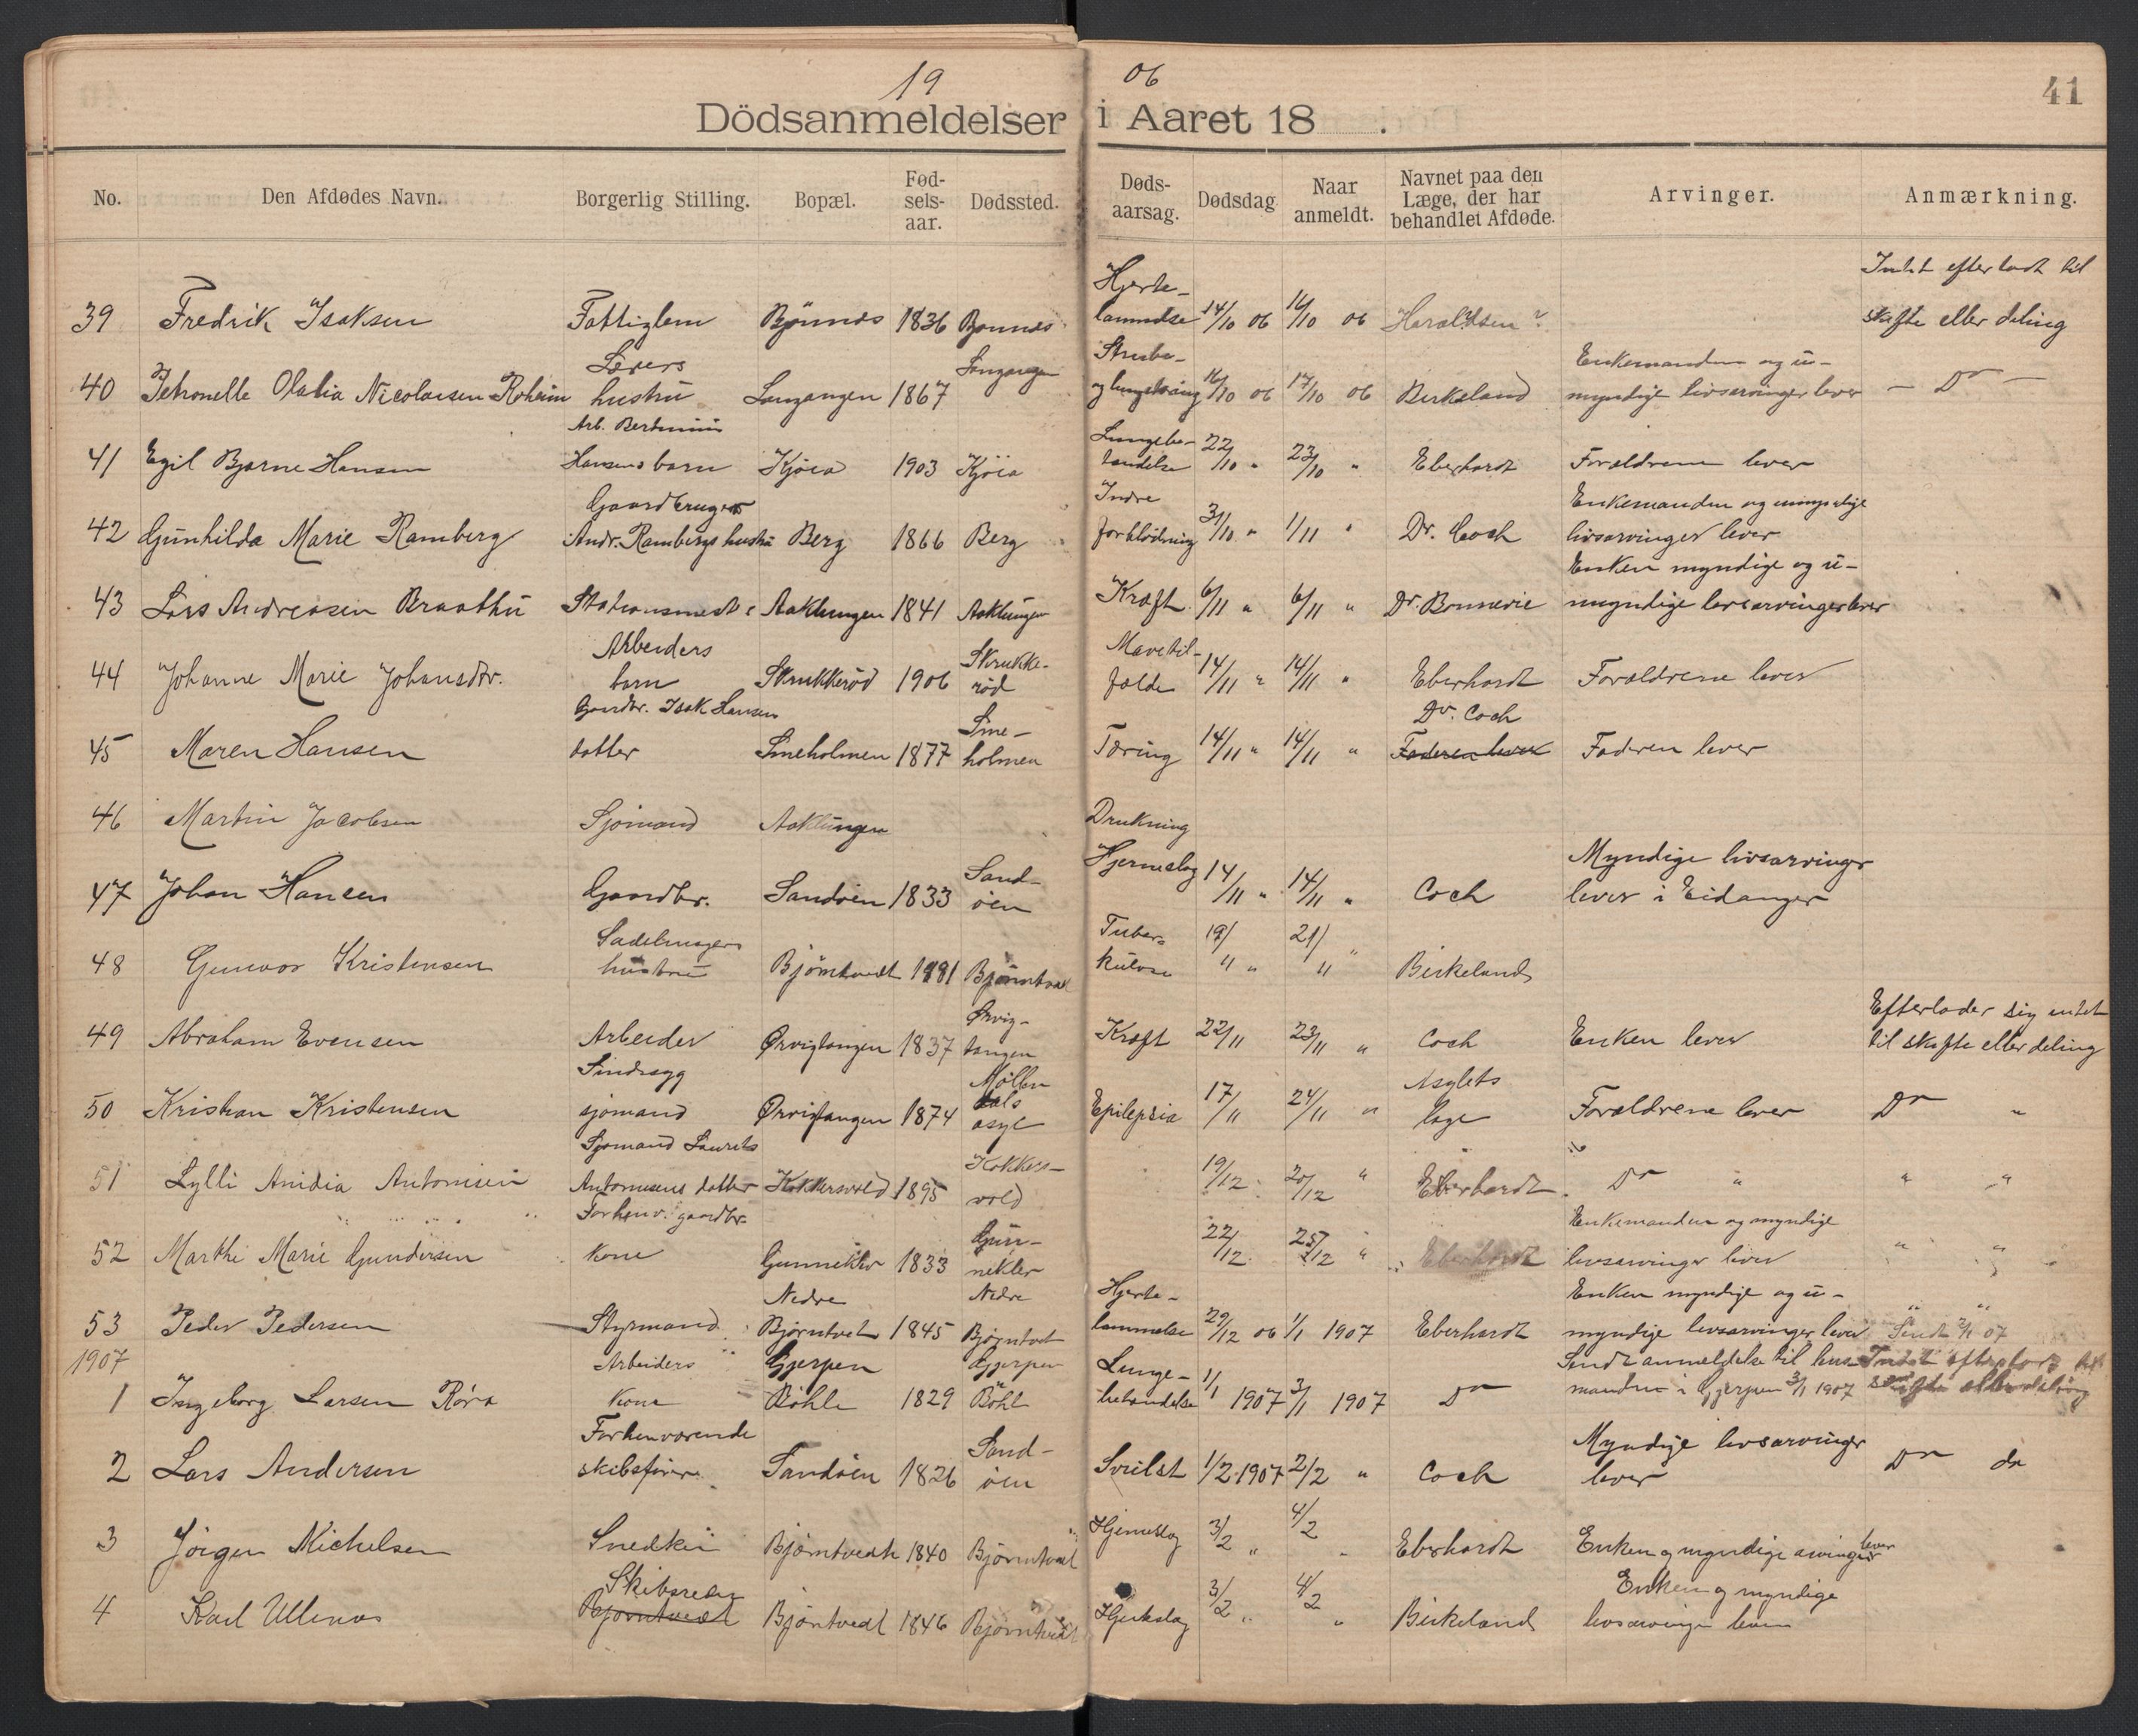 19 06
Dödsanmeldelser i Aaret 18 .
41
No. Den Afdødes Navn. Borgerlig Stilling. Bopæl. Fød-sels-aar. Dødssted. Døds-aarsag. Dødsdag Naar anmeldt. Navnet paa den Læge, der har behandlet Afdøde. Arvinger. Anmærkning.
39 Fredrik Isaksen Fattiglem 1836 Hjerte- 14/10 06 16/10 06 Haraldsen? Intet efterladt til skifte eller deling
40 Petronelle Olalia Nicolaisen Roheim hustru Langangen 1867 Langangen Strube- og 16/10 06 17/10 06 Birkeland Enkemanden og u-myndige livsarvinger lever — Do —
41 Egil Bjarne Hansen Arb. Bertinius Hansens barn Kjöia 1903 Kjöia 22/10 " 23/10 " Eberhardt Forældrene lever
42 Gunhilda Marie Ramberg Gaardbruger Andr. Rambergs hustru Berg 1866 Berg Indre forblödning 31/10 " 1/11 " Dr. Coch Enkemanden og livsarvinger lever
43 Lars Andreasen Braathu Aaklungen 1841 Aaklungen Kræft 6/11 " 6/11 " Dr. Bonnevie Enken myndige og u-myndige livsarvinger lever
44 Johanne Marie Johansdtr. Arbeiders barn Skrukkeröd 1906 Skrukke-röd Mavetil-fælde 14/11 " 14/11 " Eberhardt Forældrene lever
45 Maren Hansen Gaardbr. Isak Hansen datter Smeholmen 1877 Sme-holmen Tæring 14/11 " 14/11 " Dr. Coch Faderen lever Faderen lever
46 Martin Jacobsen Sjömand Aaklungen Drukning
47 Johan Hansen Gaardbr. Sandöen 1833 Sand-öen Hjerneslag 14/11 " 14/11 " Coch Myndige livsarvinger lever i Eidanger
48 Gunvor Kristensen hustru Björntvedt 1881 Björntvedt Tuber-kulose 19/11 " 21/11 " Birkeland
49 Abraham Evensen Arbeider Ørvigtangen 1837 Ørvig-tangen Kræft 22/11 23/11 " Coch Enken lever Efterlader sig intet til skifte eller deling
50 Kristian Kristensen Sindssyg sjömand Ørvigtangen 1874 Möllen dals asyl Epilepsia 17/11 24/11 " Asylets læge Forældrene lever Do "
51 Lylli Anidia Antonisen Sjömand Laurits Antonisens datter Kokkersvold 1895 Kokkers-vold 19/12 20/12 " Eberhardt Do " " "
52 Marthe Marie Gundersen Forhenv. gaardbr. kone Gunnekler 1833 Gun-nekler 22/12 Eberhardt Enkemanden og myndige livsarvinger lever " " "
53 Peder Pedersen Styrmand Nedre Björntvet 1845 Nedre Björntvet Hjerte-lammelse 29/12 06 1/1 1907 Eberhardt Enken myndige og u-myndige livsarvinger lever " "
1907
1 Ingeborg Larsen Röra Arbeiders kone Gjerpen Böhle 1829 Gjerpen Böhl Lunge-betændelse 1/1 1907 3/1 1907 Do Sendt anmeldelse til manden i Gjerpen 3/1 1907
2 Lars Andersen Forhenværende skibsförer Sandöen 1826 Sand-öen Svulst 1/2 1907 2/2 " Coch Myndige livsarvinger lever Do do
3 Jörgen Michelsen Snedker Björntvedt 1840 Björntvedt Hjerneslag 3/2 " 4/2 " Eberhardt Enken og myndige arvinger lever
4 Karl Ullenæs Skibsreder Bjorntvedt Björntvedt 1846 Björntvedt 3/2 " 4/2 " Birkeland Enken og myndige livsarvinger lever